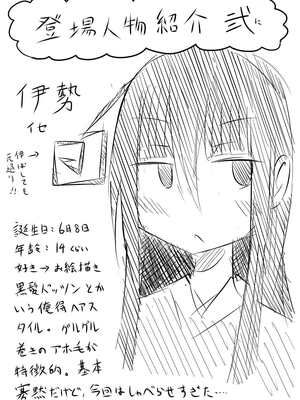 登場人物紹介 弐に
伊勢
イセ
伸ばしても
元通り!!
誕生日:6月8日
年齢:14くらい
好き→お絵描き
黒髪パッツンとか
いう俺得ヘアス
タイル。グルグル
巻きのアホ毛が
特徴的。基本
寡黙だけど、今回はしゃべらせすぎた…